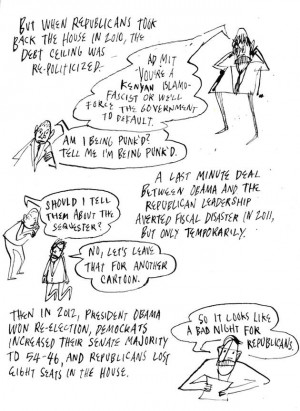 BUT WHEN REPUBLICANS TOOK
BACK THE HOUSE IN 2010, THE
DEBT CEILING WAS
RE-POLITICIZED-
ADMIT
YOU'RE A
KENYAN ISLAMO-
FASCIST OR WE'LL
FORCE THE GOVERNMENT
TO DEFAULT.
AM I BEING PUNK'D?
TELL ME I'M BEING PUNK'D.
A LAST MINUTE DEAL
BETWEEN OBAMA AND THE
REPUBLICAN LEADERSHIP
AVERTED FISCAL DISASTER IN 2011,
BUT ONLY TEMPORARILY.
SHOULD I TELL
THEM ABOUT THE
SEQUESTER?
NO, LET'S LEAVE
THAT FOR ANOTHER
CARTOON.
THEN IN 2012, PRESIDENT OBAMA
WON RE-ELECTION, DEMOCRATS
INCREASED THEIR SENATE MAJORITY
TO 54-46, AND REPUBLICANS LOST
EIGHT SEATS IN THE HOUSE.
SO IT LOOKS LIKE
A BAD NIGHT FOR
REPUBLICANS.